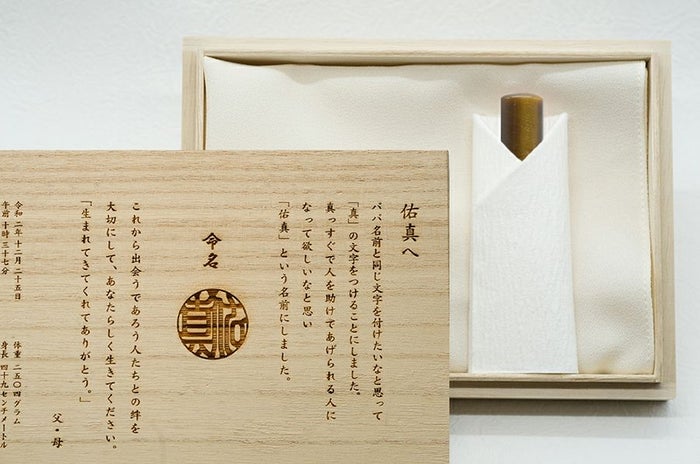 佑真へ
パパ名前と同じ文字を付けたいなと思って
「真」の文字をつけることにしました。
真っすぐで人を助けてあげられる人に
なって欲しいなと思い
「佑真」という名前にしました。
命名
佑真
これから出会うであろう人たちとの絆を
大切にして、あなたらしく生きてください。
「生まれてきてくれてありがとう。」
父・母
令和二年十二月二十五日
午前 十時 三十七分
体重 二五〇四グラム
身長 四十九センチメートル